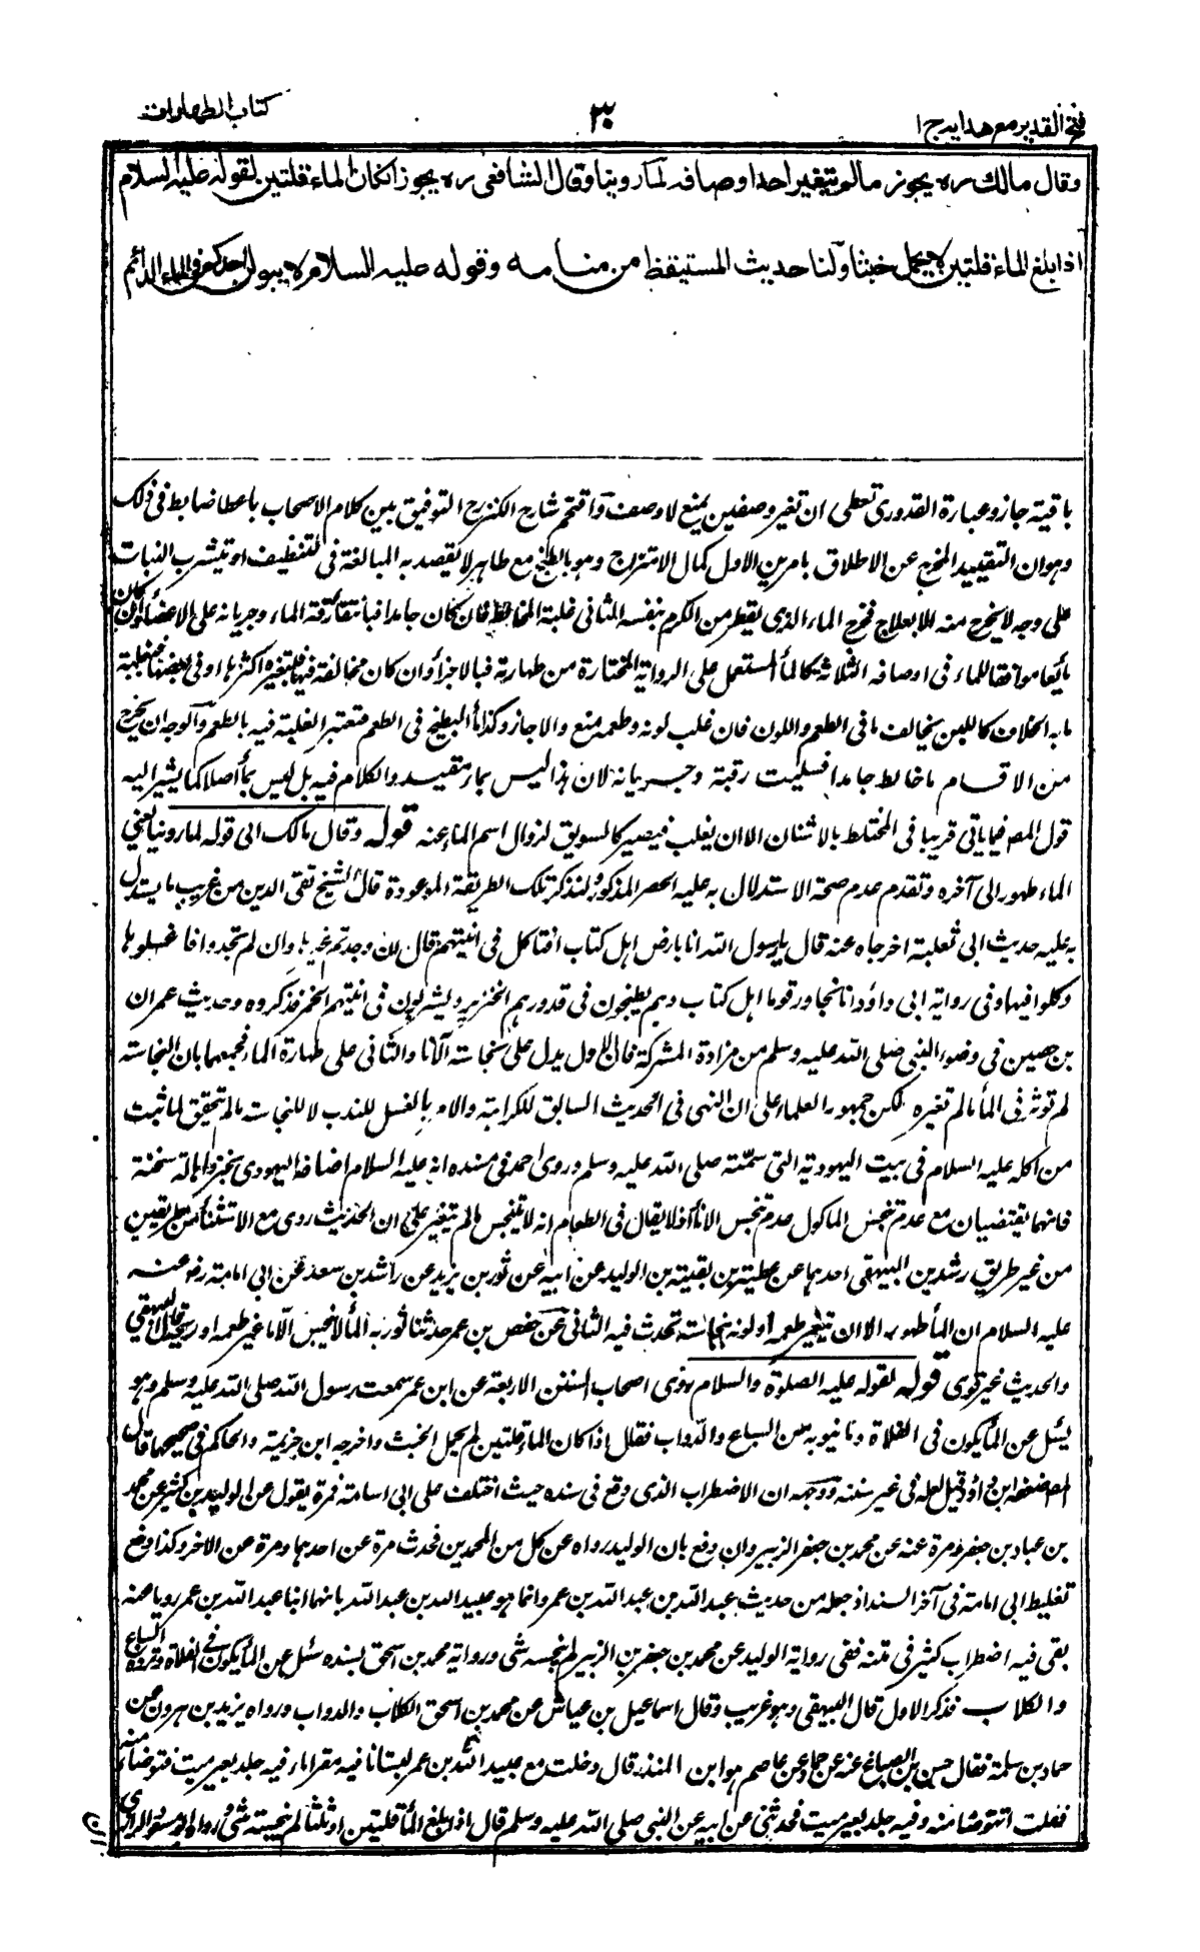 فتح القدير مع هدايه ج ١
٣٠
كتاب الطهارات
وقال مالك ره يجوز مالم يتغير احد اوصافه لما روينا وقال الشافعى ره يجوز اذا كان الماء قلتين لقوله عليه السلام
اذا بلغ الماء قلتين لا يحمل خبثا ولنا حديث المستيقظ من منامه وقوله عليه السلام لا يبولن احدكم فى الماء الدائم
باقية جاز وعبارة القدورى تعطى ان تغير وصفين يمنع لا وصف واقتحم شارح الكنز رح التوفيق بين كلام الاصحاب باعطا ضابط فى ذلك
وهو ان التقييد المخرج عن الاطلاق بامرين الاول كمال الامتزاج وهو بالطبخ مع طاهر لا يقصد به المبالغة فى التنظيف او تيشرب النبات
على وجه لا يخرج منه الا بعلاج فخرج الماء الذى يقطر من الكرم بنفسه الثانى غلبة المخالط فان كان جامدا فبانتفاء رقة الماء وجريانه على الاعضاء وان كان
مائعا موافقا للماء فى اوصافه الثلاثة كالماء المستعمل على الرواية المختارة من طهارته فبالاجزاء وان كان مخالفة فيها فبتغير اكثرها او فى بعضها فبغلبة
ما به الخلاف كاللبن يخالف ما فى الطعم واللون فان غلب لونه وطعمه منع والا جاز وكذا ماء البطيخ فى الطعم فتعتبر الغلبة فيه بالطعم والوجه ان يخرج
من الاقسام ما خالط جامدا فسلبت رقبة وجريانه لان هذا ليس بماء مقيد والكلام فيه بل ليس بماء اصلا كما يشير اليه
قول المص فيما ياتى قريبا فى المختلط بالاشنان الا ان يغلب فيصير كالسويق لزوال اسم الماء عنه قوله وقال مالك الى قوله لما روينا يعنى
الماء طهور الى آخره وتقدم عدم صحة الاستدلال به عليه الحصر المذكور ولنذكر تلك الطريقة الموعودة قال الشيخ تقى الدين من غريب ما يستدل
به عليه حديث ابى ثعلبة اخرجاه عنه قال يا رسول الله انا بارض اهل كتاب افناكل فى انيتهم قال ان وجدتم غيرها وان لم تجدوا فاغسلوها
وكلوا فيها وفى رواية ابى داؤد انا نجاور قوما اهل كتاب وهم يطبخون فى قدورهم الخنزير ويشربون فى انيتهم الخمر فذكروه وحديث عمران
بن حصين فى وضوء النبى صلى الله عليه وسلم من مزادة المشركة فالاول يدل على نجاسة الانا والثانى على طهارة الماء فجمعها بان النجاسة
لم توثر فى الماء مالم تغيره لكن جمهور العلماء على ان النهى فى الحديث السابق للكراهة والامر بالغسل للندب لا للنجاسة مالم تتحقق لما ثبت
من اكله عليه السلام فى بيت اليهودية التى سمته صلى الله عليه وسلم وروى احمد فى مسنده انه عليه السلام اضافه اليهودى بخبز واهالة سخنة
فانهما يقتضيان مع عدم تنجس الماكول عدم تنجس الاناء اذ لا يقال فى الطعام انه لا يتنجس مالم يتغير على ان الحديث روى مع الاستثناء من طريقين
من غير طريق رشدين البيهقى احدهما عن عطية بن بقية بن الوليد عن ابيه عن ثور بن يزيد عن راشد بن سعد عن ابى امامة رض عنه
عليه السلام ان الماء طهور الا ان تغير طعمه او لونه بنجاسة تحدث فيه الثانى عن حفص بن عمر حدثنا ثور به الماء لا ينجس الا ما غير طعمه او ريحه قال البيهقى
والحديث غير قوى قوله لقوله عليه الصلوة والسلام روى اصحاب السنن الاربعة عن ابن عمر سمعت رسول الله صلى الله عليه وسلم وهو
يسئل عن الماء يكون فى الفلاة وما ينوبه من السباع والدواب فقال اذا كان الماء قلتين لم يحمل الخبث واخرجه ابن خزيمة والحاكم فى صحيحهما قال
المص ضعفه ابو داؤد قيل لعله فى غير سننه ووجهه ان الاضطراب الذى وقع فى سنده حيث اختلف على ابى اسامة فمرة يقول عن الوليد بن كثير عن محمد
بن عباد بن جعفر ومرة عنه عن محمد بن جعفر الزبير وان دفع بان الوليد رواه عن كل من المحمدين فحدث مرة عن احدهما ومرة عن الاخر وكذا دفع
تغليط ابى امامة فى آخر السند اذ جعله من حديث عبد الله بن عبد الله بن عمر وانما هو عبيد الله بن عبد الله بانهما ابنا عبد الله بن عمر رويا عنه
بقى فيه اضطراب كثير فى متنه ففى رواية الوليد عن محمد بن جعفر بن الزبير لم ينجسه شى ورواية محمد بن اسحق بسنده سئل عن الماء يكون فى الفلاة وترده السباع
والكلاب فذكر الاول قال البيهقى وهو غريب وقال اسماعيل بن عياش عن محمد بن اسحق الكلاب والدواب ورواه يزيد بن هرون عن
حماد بن سلمة فقال حسن بن الصباغ عنه عن حماد عن عاصم هو ابن المنذر قال دخلت مع عبيد الله بن عمر بستانا فيه مقراماء فيه جلد بعير ميت فتوضاء منه
فقلت اتتوضا منه وفيه جلد بعير ميت فحدثنى عن ابيه عن النبى صلى الله عليه وسلم قال اذا بلغ الماء قلتين او ثلثا لم ينجسه شى ورواه ابو مسعود الرازى